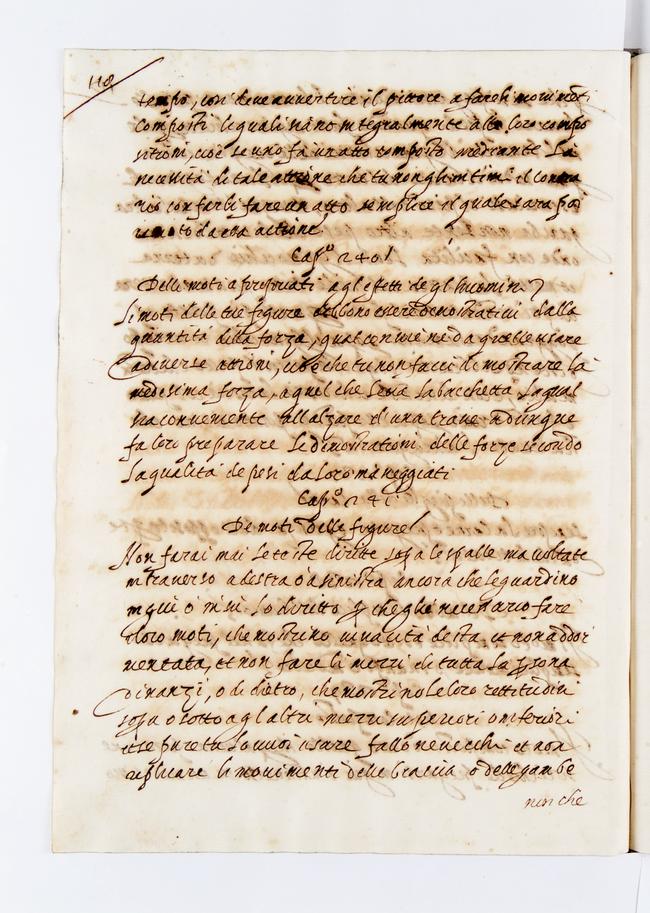 118
tempo, così deve avvertire il pittore a fare li movimẽti
composti li quali siano integralmente alle loro compo
sitioni, cioè se uno fa un atto composto mediante la
necessità di tale attione che tu non gli imitim il contra
rio con farli fare un atto semplice il quale sara poi
remoto da essa actione
Capº 240
Delli moti appropriati agl effetti degl huomini
Li moti delle tue figure debbono essere dimostrativi della
quantità della forza, qual conviene da quelle usare
a diverse attioni, cioè che tu non facci dimostrare la
medesima forza, a quel che leva la bacchetta la qual
sia conveniente all alzare d'una trave adunque
fa loro preparare le dimostrationi delle forze secondo
la qualità de pesi da loro maneggiati
Capº 241
De moti delle figure
Non farai mai le teste diritte sopa le spalle ma voltate
in traverso a destra ò a sinistra ancora che le guardino
in giù ò in sù lo diritto ꝑ che gliè necessario fare
i loro moti, che mostrino vivacità desta et non addor
mentata, et non fare li mezzi di tutta la ꝑsona
dinanzi, o di dietro, che mostrino le loro rettitudini
sopa o sotto agl altri mezzi superiori o inferiori
et se pure tu lo vuoi usare fallo ne vecchi et non
replicare li movimenti delle braccia o delle gambe
non che